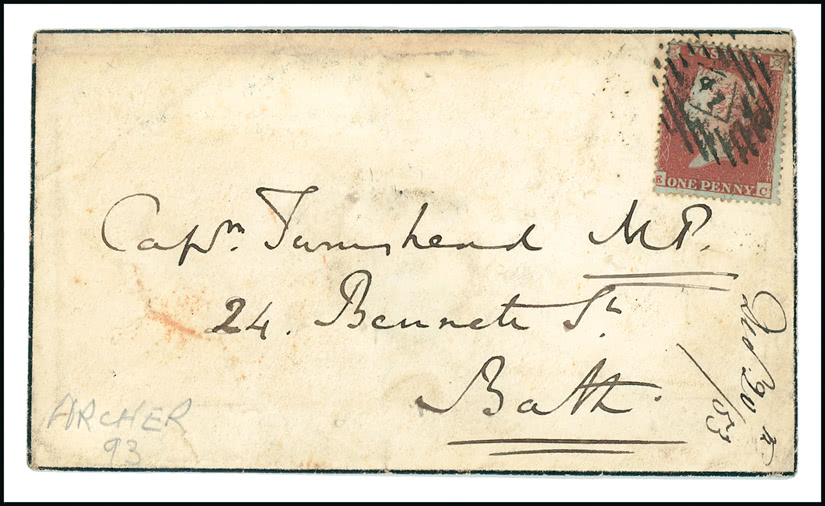 E ONE PENNY C
Capn. Townshend M.P.
24. Bennett St.
Bath.
20
/53
ARCHER
93